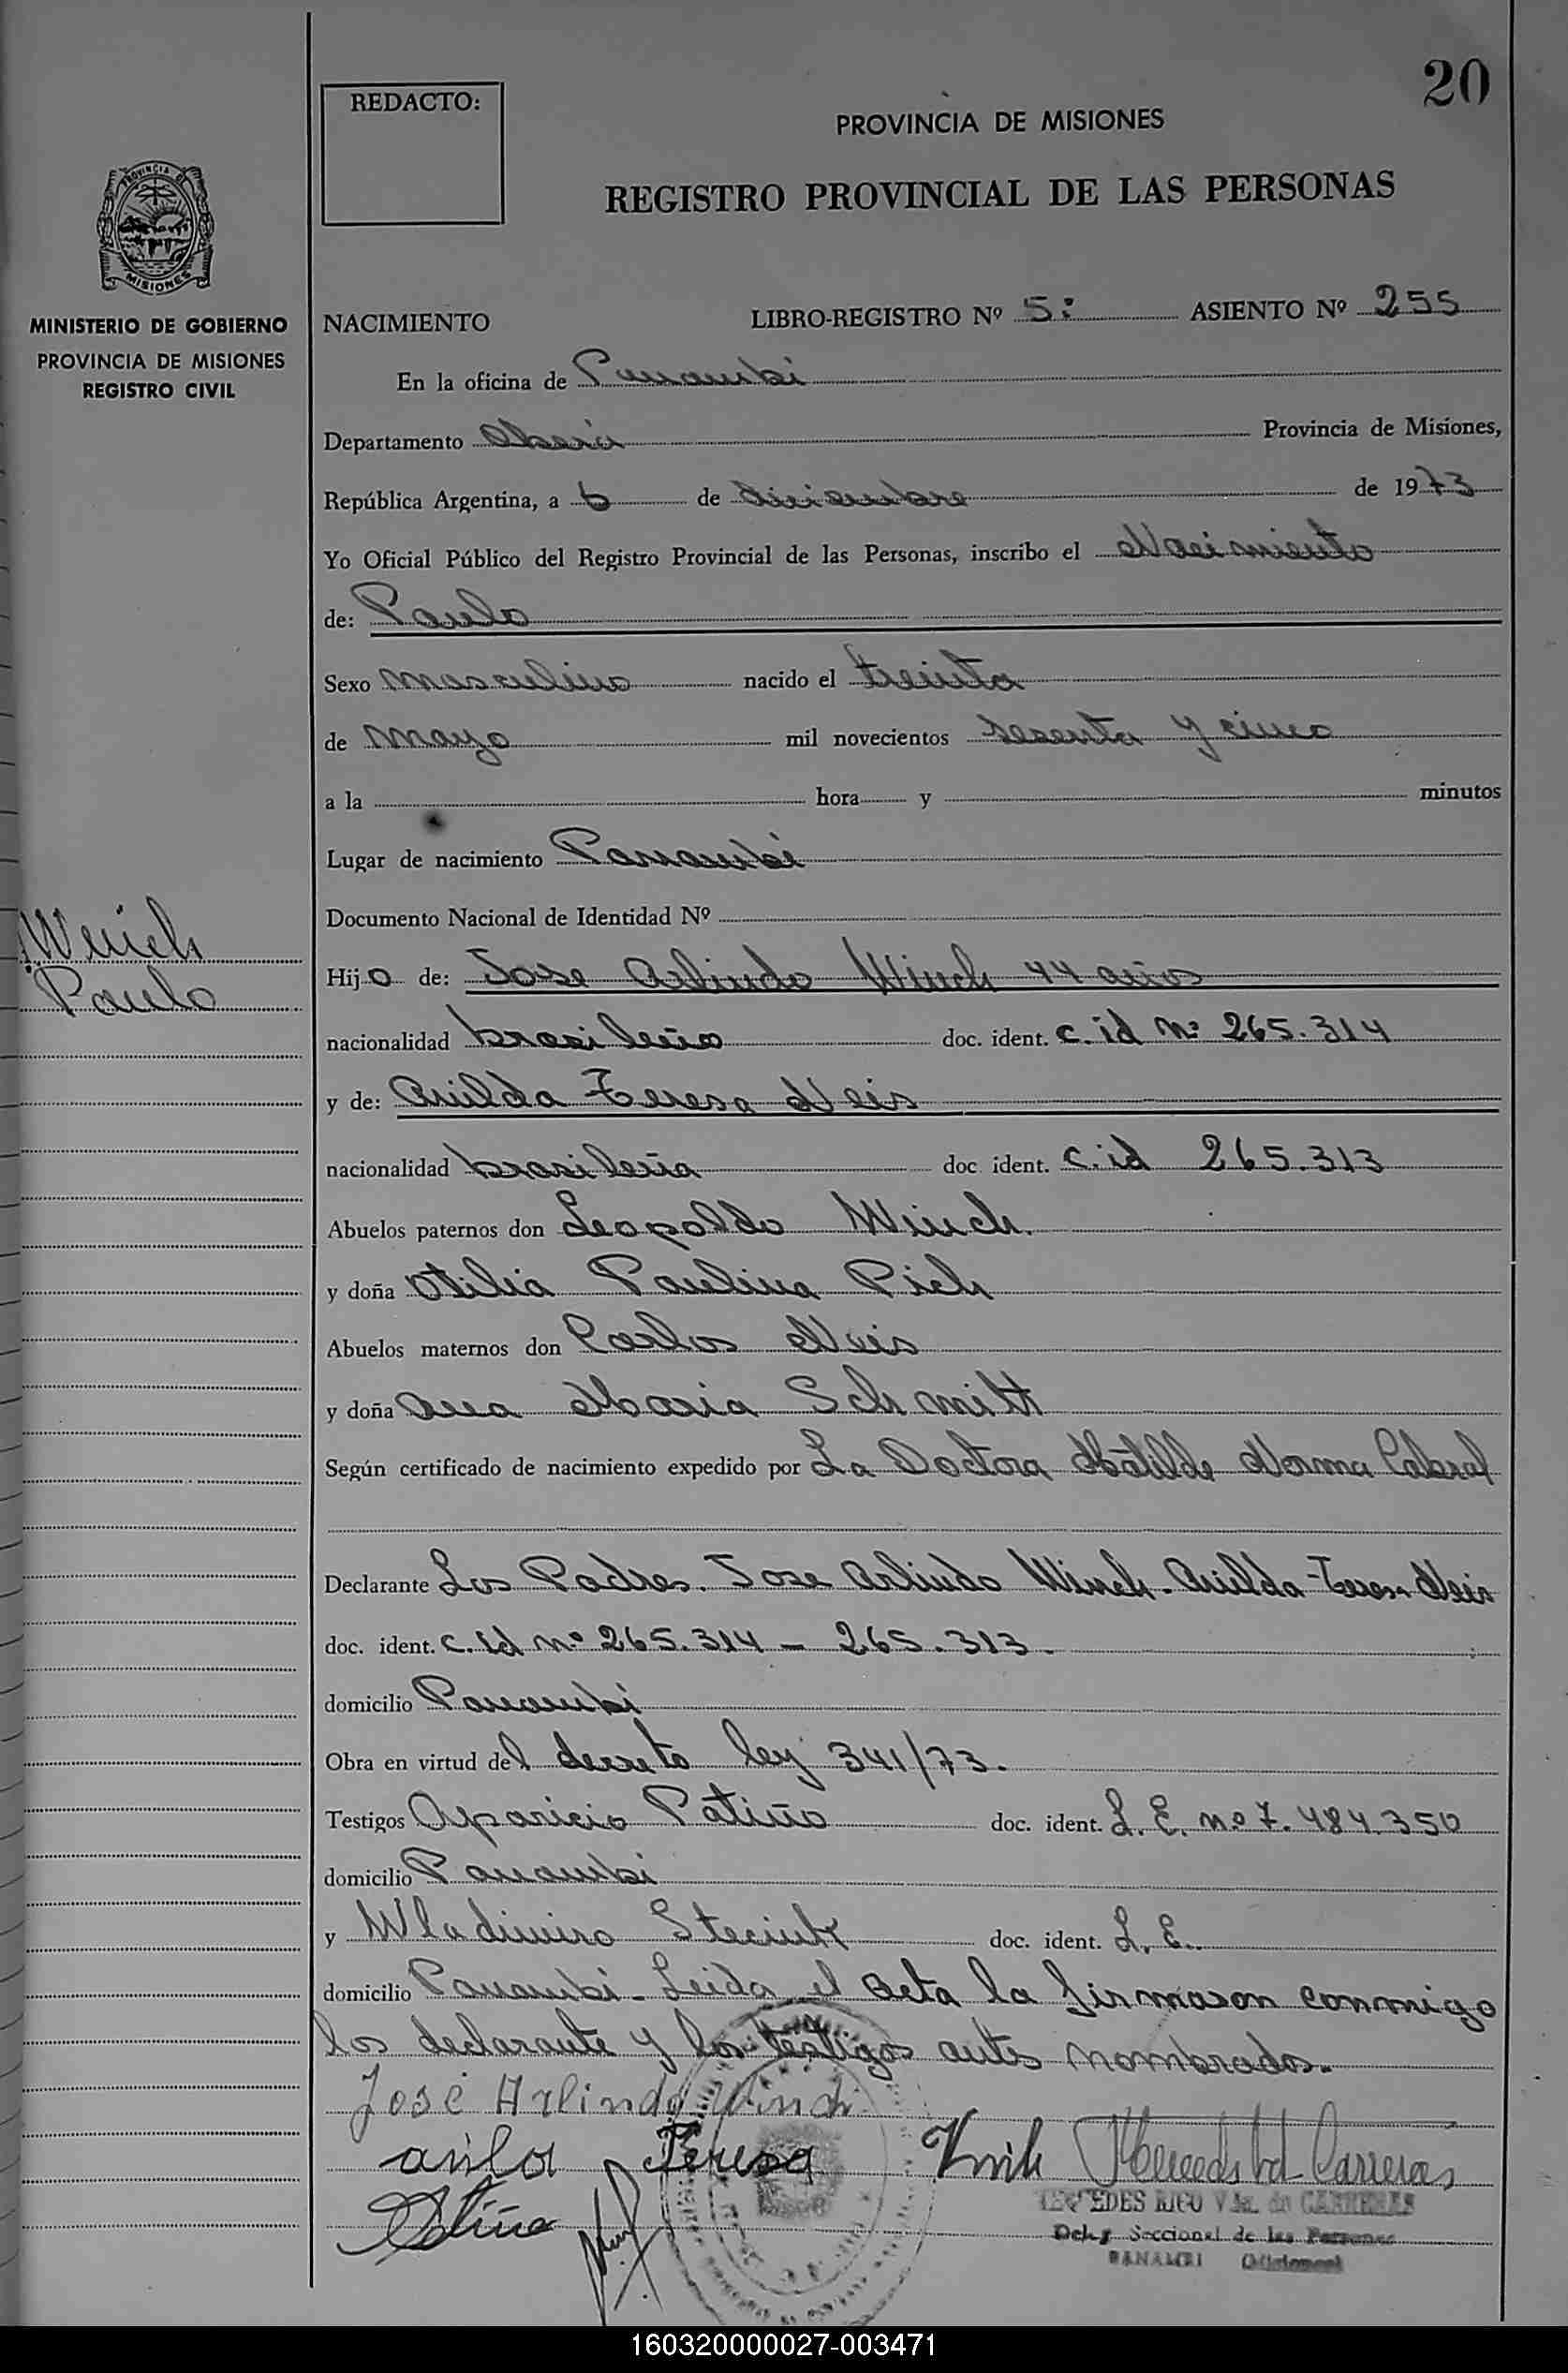 20
REDACTO:
PROVINCIA DE MISIONES
REGISTRO PROVINCIAL DE LAS PERSONAS
PROVINCIA DE
MISIONES
MINISTERIO DE GOBIERNO
PROVINCIA DE MISIONES
REGISTRO CIVIL
NACIMIENTO LIBRO-REGISTRO Nº 5: ASIENTO Nº 255
En la oficina de Panambi
Departamento Oberá Provincia de Misiones,
República Argentina, a 6 de diciembre de 1973
Yo Oficial Público del Registro Provincial de las Personas, inscribo el Nacimiento
de: Paulo
Sexo masculino nacido el treinta
de mayo mil novecientos sesenta y cinco
a la hora y minutos
Lugar de nacimiento Panambi
Documento Nacional de Identidad Nº
Winch
Paulo
Hijo de: Jose Arlindo Winch 44 años
nacionalidad brasileño doc. ident. c. id Nº 265.314
y de: Anilda Teresa Neis
nacionalidad brasileña doc ident. c. id 265.313
Abuelos paternos don Leopoldo Winch.
y doña Otilia Paulina Pich
Abuelos maternos don Carlos Neis
y doña Ana Maria Schmitt
Según certificado de nacimiento expedido por La Doctora Matilde Norma Cabral
Declarante Los Padres. Jose Arlindo Winch. Anilda Teresa Neis
doc. ident. c. id nº 265.314 - 265.313.
domicilio Panambi
Obra en virtud del decreto ley 341/73.
Testigos Aparicio Patiño doc. ident. L. E. nº 7.484.350
domicilio Panambi
y Wladimiro Steciuk doc. ident. L. E.
domicilio Panambi - Leida el acta la firmaron conmigo
los declarante y los testigos antes nombrados.
José Arlindo Winch
Teresa
Patiño
MERCEDES RICO Vda. de CARRERAS
Deleg Seccional de las Personas
PANAMBI (Misiones)
160320000027-003471